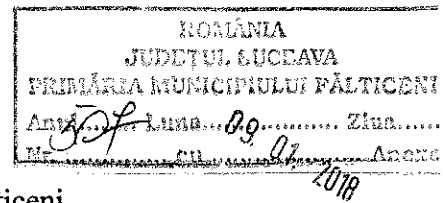 ROMÂNIA
JUDEȚUL SUCEAVA
PRIMĂRIA MUNICIPIULUI FĂLTICENI
Anul........Luna...09...........Ziua......
Nr..............cu...01............Anexe
2018
ticeni